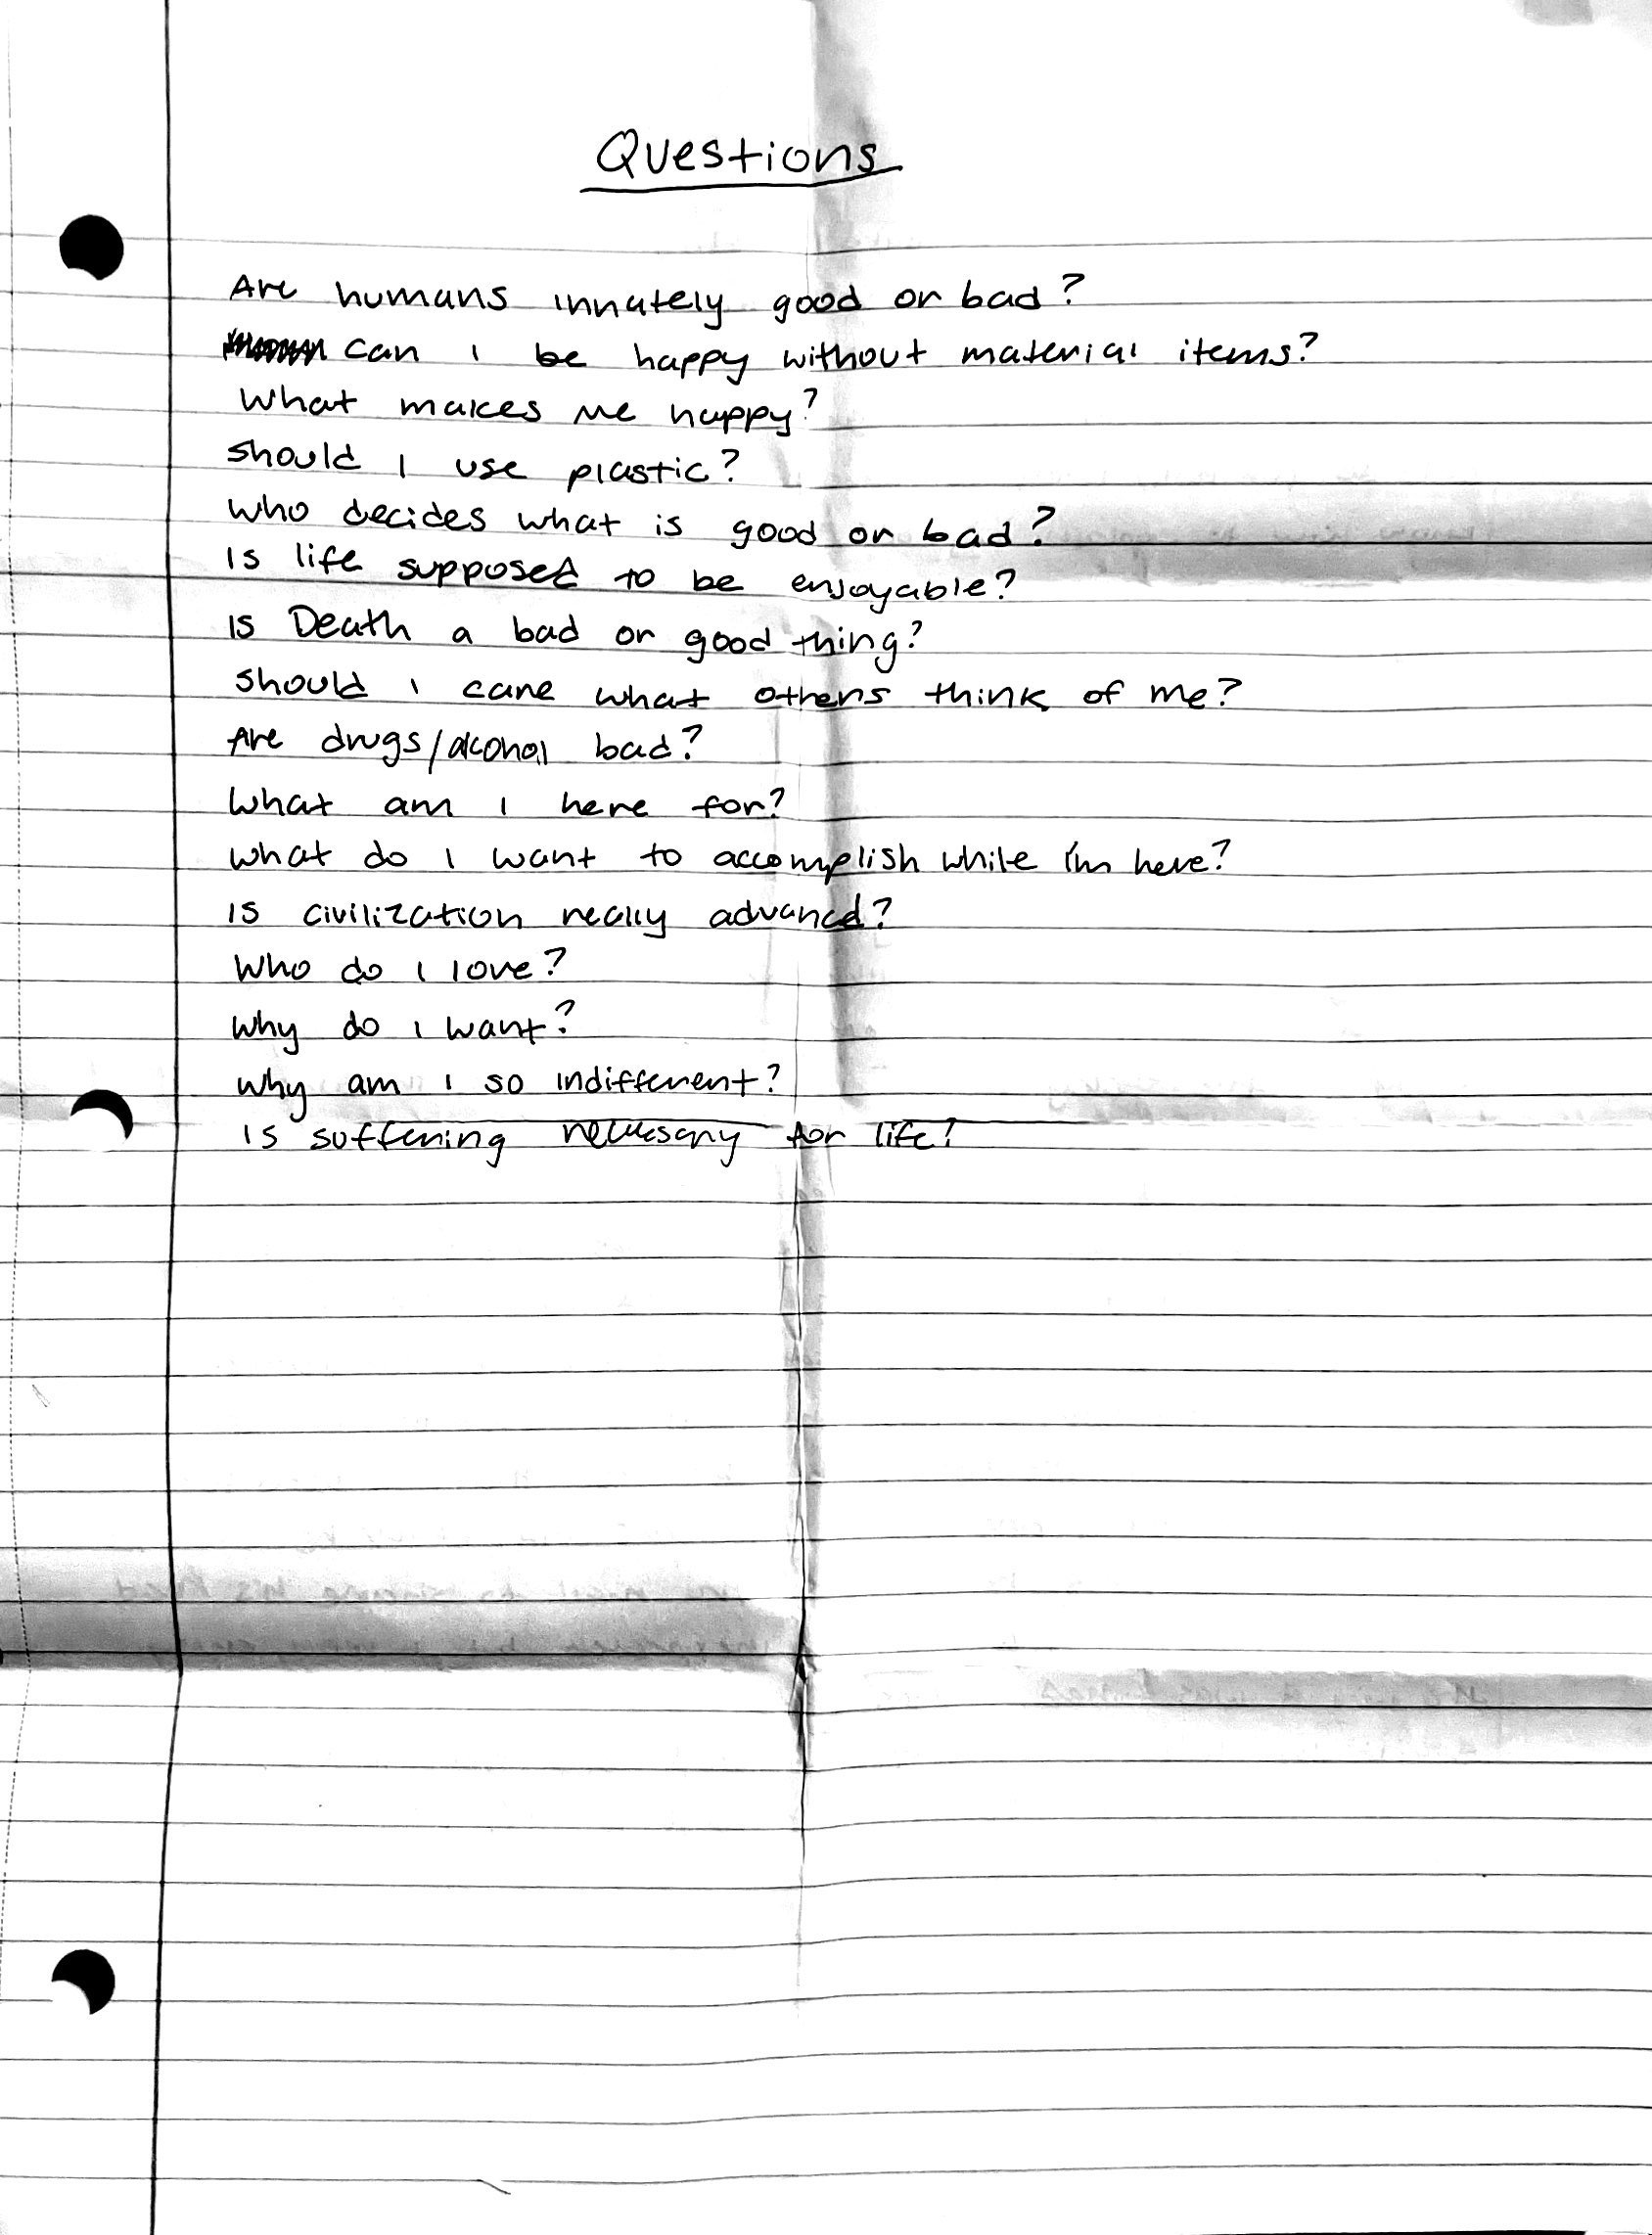 Questions
Are humans innately good or bad?
can i be happy without material items?
What makes me happy?
Should I use plastic?
Who decides what is good or bad?
Is life supposed to be enjoyable?
Is Death a bad or good thing?
Should i care what others think of me?
Are drugs/alcohol bad?
What am I here for?
What do I want to accomplish while i'm here?
Is civilization really advanced?
Who do I love?
Why do i want?
Why am I so indifferent?
Is suffering necessary for life?